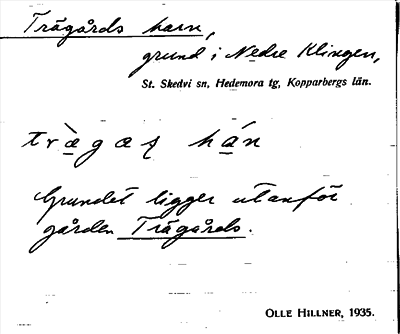 Trägårds harn,
grund i Nedre Klingen,
St. Skedvi sn, Hedemora tg, Kopparbergs län.
træ̀gaʂ hán
Grundet ligger utanför
gården Trägårds.
OLLE HILLNER, 1935.